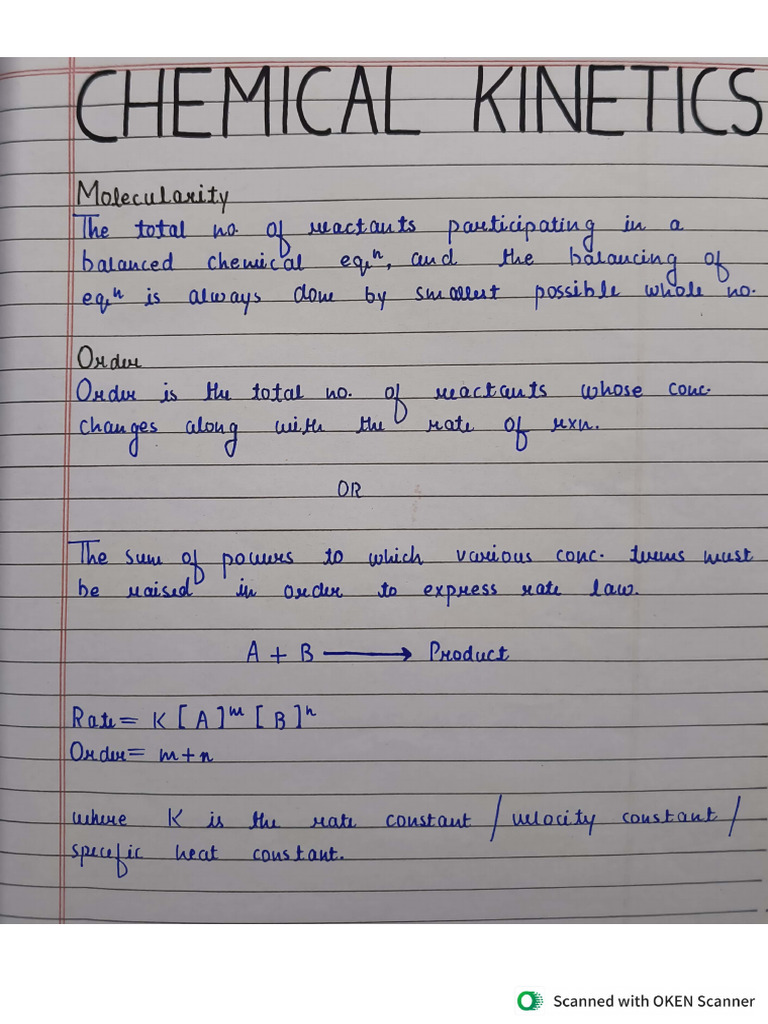 CHEMICAL KINETICS
Molecularity
The total no. of reactants participating in a
balanced chemical eqⁿ, and the balancing of
eqⁿ is always done by smallest possible whole no.
Order
Order is the total no. of reactants whose conc.
changes along with the rate of rxn.
OR
The sum of powers to which various conc. terms must
be raised in order to express rate law.
A + B ⟶ Product
Rate = K [A]ᵐ [B]ⁿ
Order = m+n
where K is the rate constant / velocity constant /
specific heat constant.
Scanned with OKEN Scanner